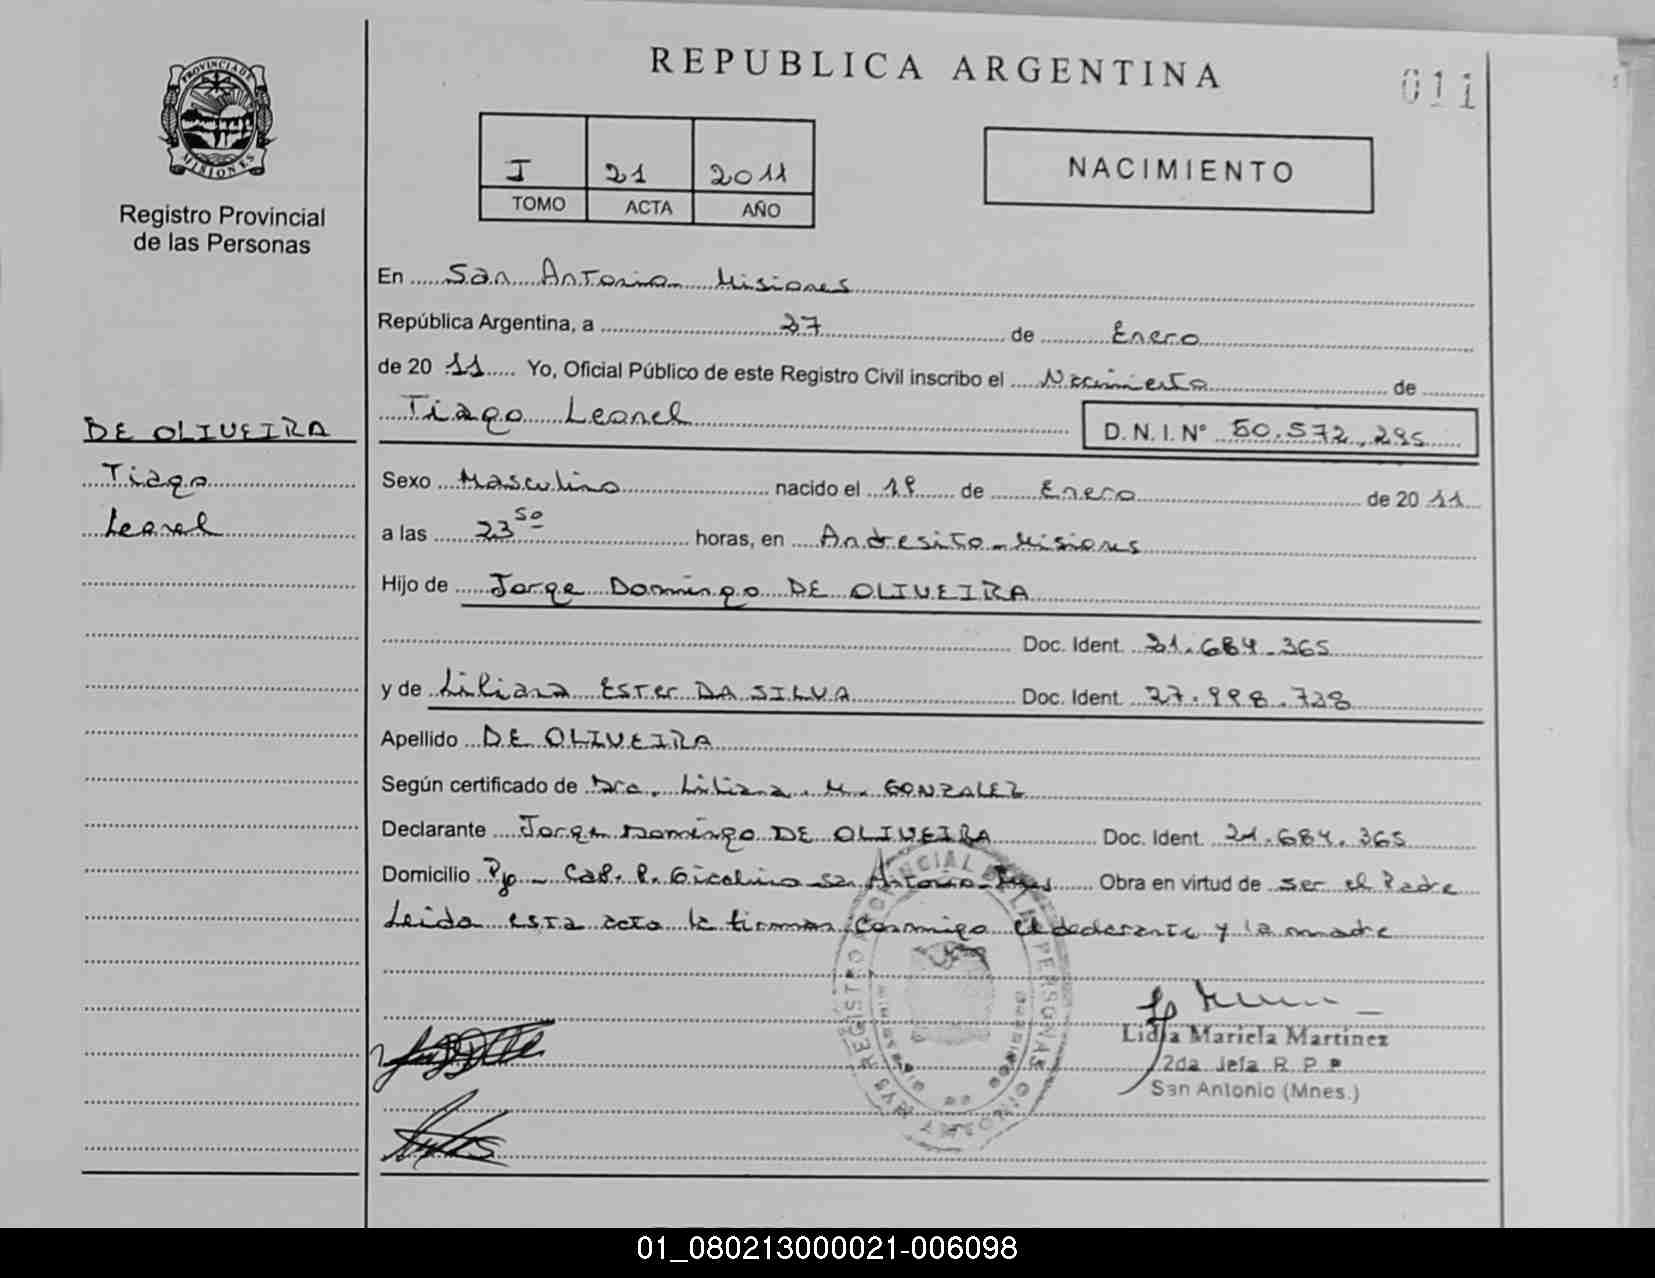 REPUBLICA ARGENTINA
011
PROVINCIA DE
MISIONES
Registro Provincial
de las Personas
I 21 2011
TOMO ACTA AÑO
NACIMIENTO
En San Antonio Misiones
República Argentina, a 27 de Enero
de 20 11 Yo, Oficial Público de este Registro Civil inscribo el Nacimiento de
Tiago Leonel
D. N. I. N° 50.572.295
DE OLIVEIRA
Tiago
Leonel
Sexo Masculino nacido el 19 de Enero de 20 11
a las 23 50 horas, en Andresito - Misiones
Hijo de Jorge Domingo DE OLIVEIRA
Doc. Ident. 21.684.365
y de Liliana Ester DA SILVA Doc. Ident. 27.998.728
Apellido DE OLIVEIRA
Según certificado de Dra. Liliana M. GONZALEZ
Declarante Jorge Domingo DE OLIVEIRA Doc. Ident. 21.684.365
Domicilio San Antonio Obra en virtud de ser el Padre
Leida esta acta la firman conmigo el declarante y la madre
REGISTRO PROVINCIAL DE LAS PERSONAS
Lidia Mariela Martinez
2da Jefa R. P. P
San Antonio (Mnes.)
01_080213000021-006098